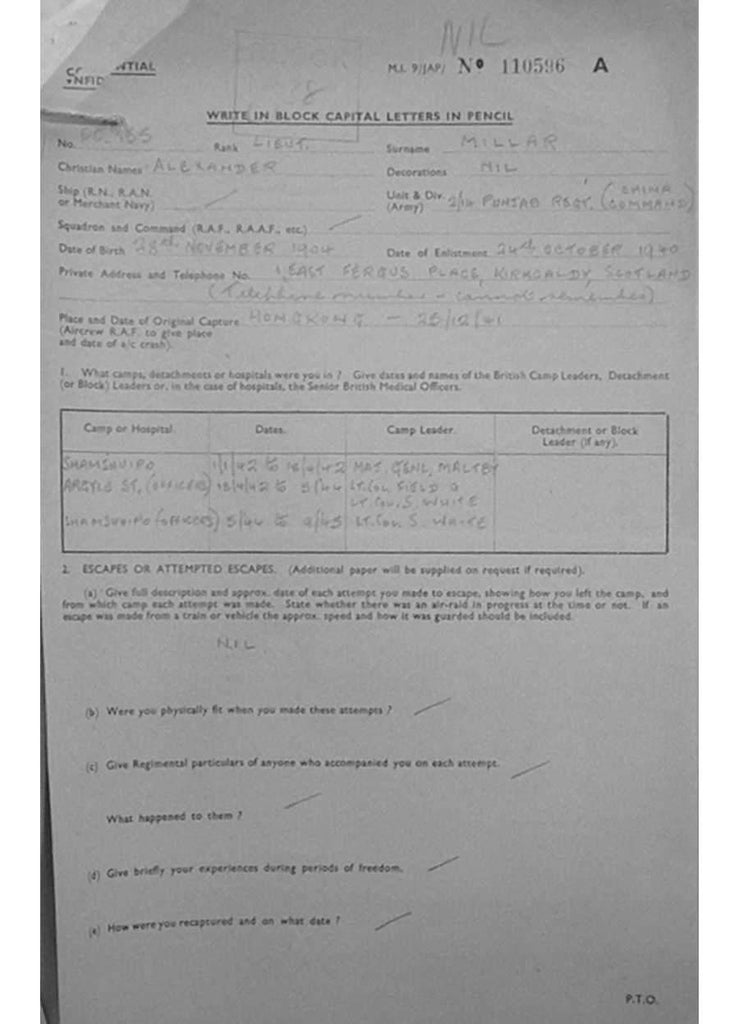 NIL
CONFIDENTIAL
M.I. 9/JAP/ Nº 110596 A
WRITE IN BLOCK CAPITAL LETTERS IN PENCIL
No. Rank LIEUT. Surname MILLAR
Christian Names ALEXANDER Decorations NIL
Ship (R.N., R.A.N. or Merchant Navy)
Unit & Div. (Army) 2/14 PUNJAB REGT. (CHINA COMMAND)
Squadron and Command (R.A.F., R.A.A.F., etc.)
Date of Birth 28th NOVEMBER 1904 Date of Enlistment 24th OCTOBER 1940
Private Address and Telephone No. 1, EAST FERGUS PLACE, KIRKCALDY, SCOTLAND
(Telephone number - cannot remember)
Place and Date of Original Capture HONGKONG - 25/12/41
(Aircrew R.A.F. to give place
and date of a/c crash).
1. What camps, detachments or hospitals were you in ? Give dates and names of the British Camp Leaders, Detachment
(or Block) Leaders or, in the case of hospitals, the Senior British Medical Officers.
Camp or Hospital. Dates. Camp Leader. Detachment or Block Leader (if any).
SHAMSHUIPO 1/1/42 to 18/4/42 MAJ. GENL. MALTBY
ARGYLE ST. (OFFICERS) 18/4/42 to 5/44 LT. COL. FIELD &
LT. COL. S. WHITE
SHAMSHUIPO (OFFICERS) 5/44 to 9/45 LT. COL. S. WHITE
2. ESCAPES OR ATTEMPTED ESCAPES. (Additional paper will be supplied on request if required).
(a) Give full description and approx. date of each attempt you made to escape, showing how you left the camp, and
from which camp each attempt was made. State whether there was an air-raid in progress at the time or not. If an
escape was made from a train or vehicle the approx. speed and how it was guarded should be included.
NIL
(b) Were you physically fit when you made these attempts ?
(c) Give Regimental particulars of anyone who accompanied you on each attempt.
What happened to them ?
(d) Give briefly your experiences during periods of freedom.
(e) How were you recaptured and on what date ?
P.T.O.